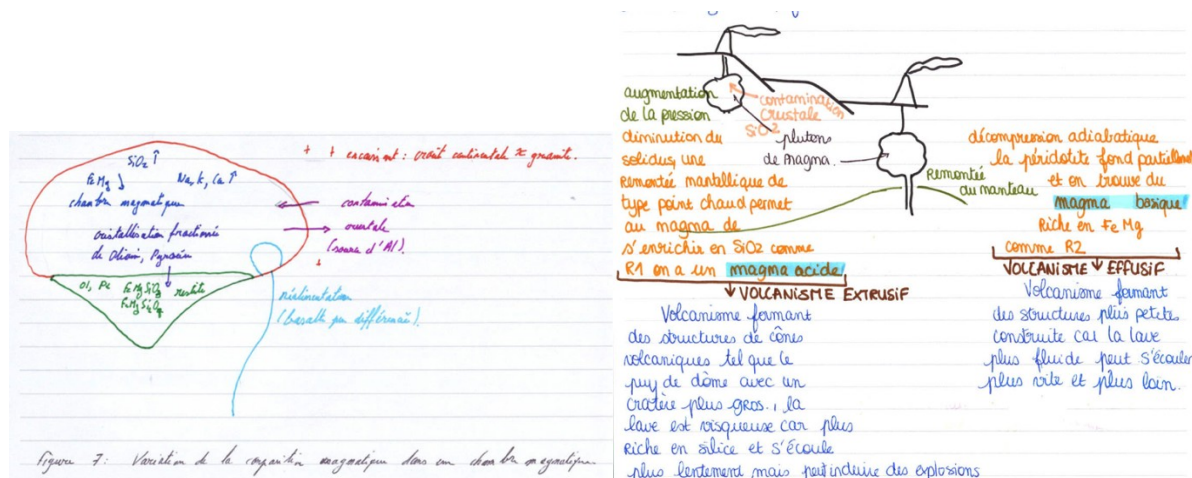 SiO2 ↑
FeMg ↓ Na, K, Ca ↑
chambre magmatique
cristallisation fractionnée
de Olivin, Pyroxèn
+ + encaissant : croût continentale ≈ granite.
contamination
crustale
(source d'Al)
+
Ol, Px FeMgSiO3 restite
réalimentation
(basalte peu différencié).
Figure 7 : Variation de la composition magmatique dans une chambre magmatique.
augmentation
de la pression
diminution du
solidus, une
Remontée mantellique de
type point chaud permet
au magma de
s'enrichir en SiO2 comme
R1 on a un magma acide
contamination
crustale
SiO2
plutons
de magma
Remontée
du manteau
décompression adiabatique
la péridotite fond partiellement
et on trouve du
magma basique
Riche en FeMg
comme R2
↓ VOLCANISME EXTRUSIF
Volcanisme formant
des structures de cônes
volcaniques tel que le
puy de dôme avec un
cratère plus gros., la
lave est visqueuse car plus
Riche en silice et s'écoule
plus lentement mais peut induire des explosions
VOLCANISME ↓ EFFUSIF
Volcanisme formant
des structures plus petites
construite car la lave
plus fluide peut s'écouler
plus vite et plus loin.